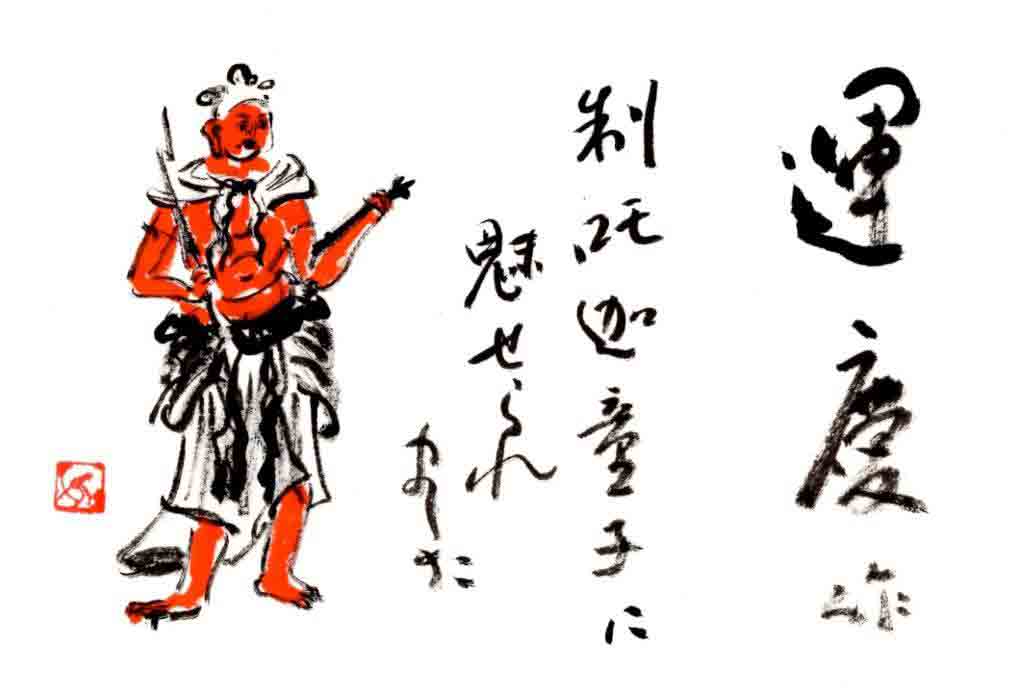 運慶作
制吒迦童子に
魅せられ